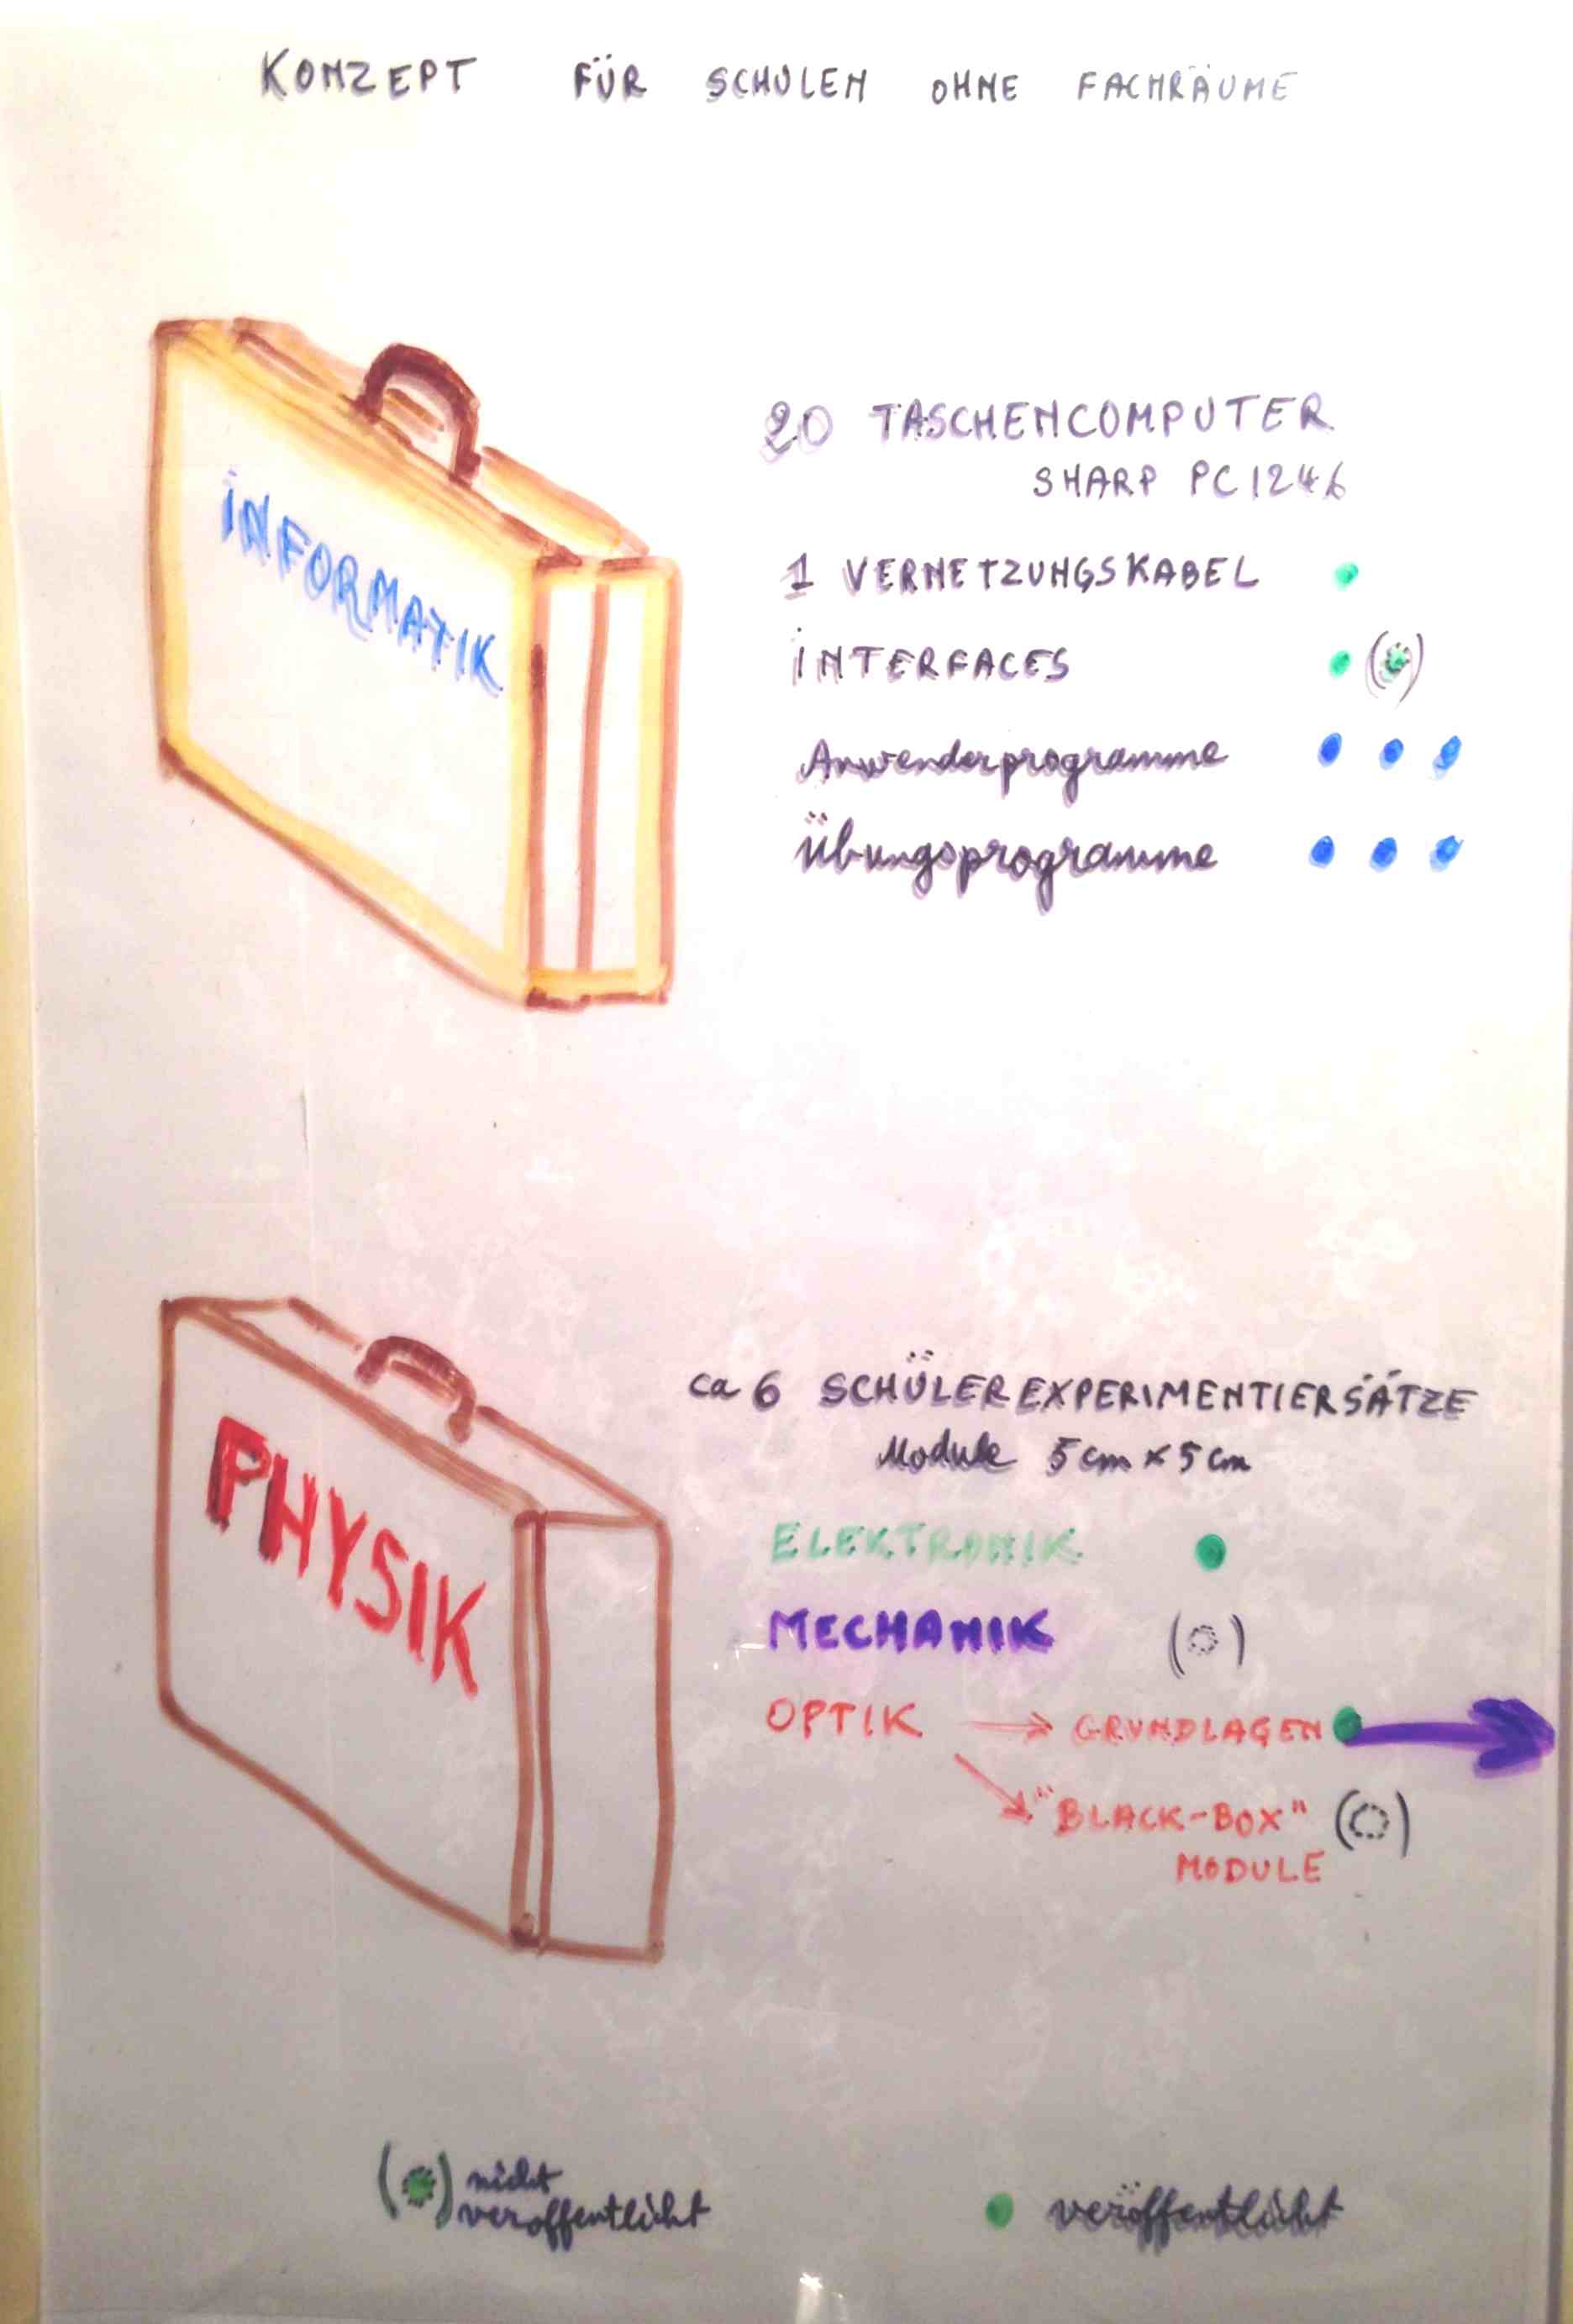 KONZEPT FÜR SCHULEN OHNE FACHRÄUME
INFORMATIK
20 TASCHENCOMPUTER
SHARP PC 1246
1 VERNETZUNGSKABEL
INTERFACES
Anwenderprogramme
Übungsprogramme
PHYSIK
ca 6 SCHÜLEREXPERIMENTIERSÄTZE
Module 5cm x 5cm
ELEKTRONIK
MECHANIK
OPTIK → GRUNDLAGEN
"BLACK-BOX"
MODULE
nicht
veröffentlicht
veröffentlicht